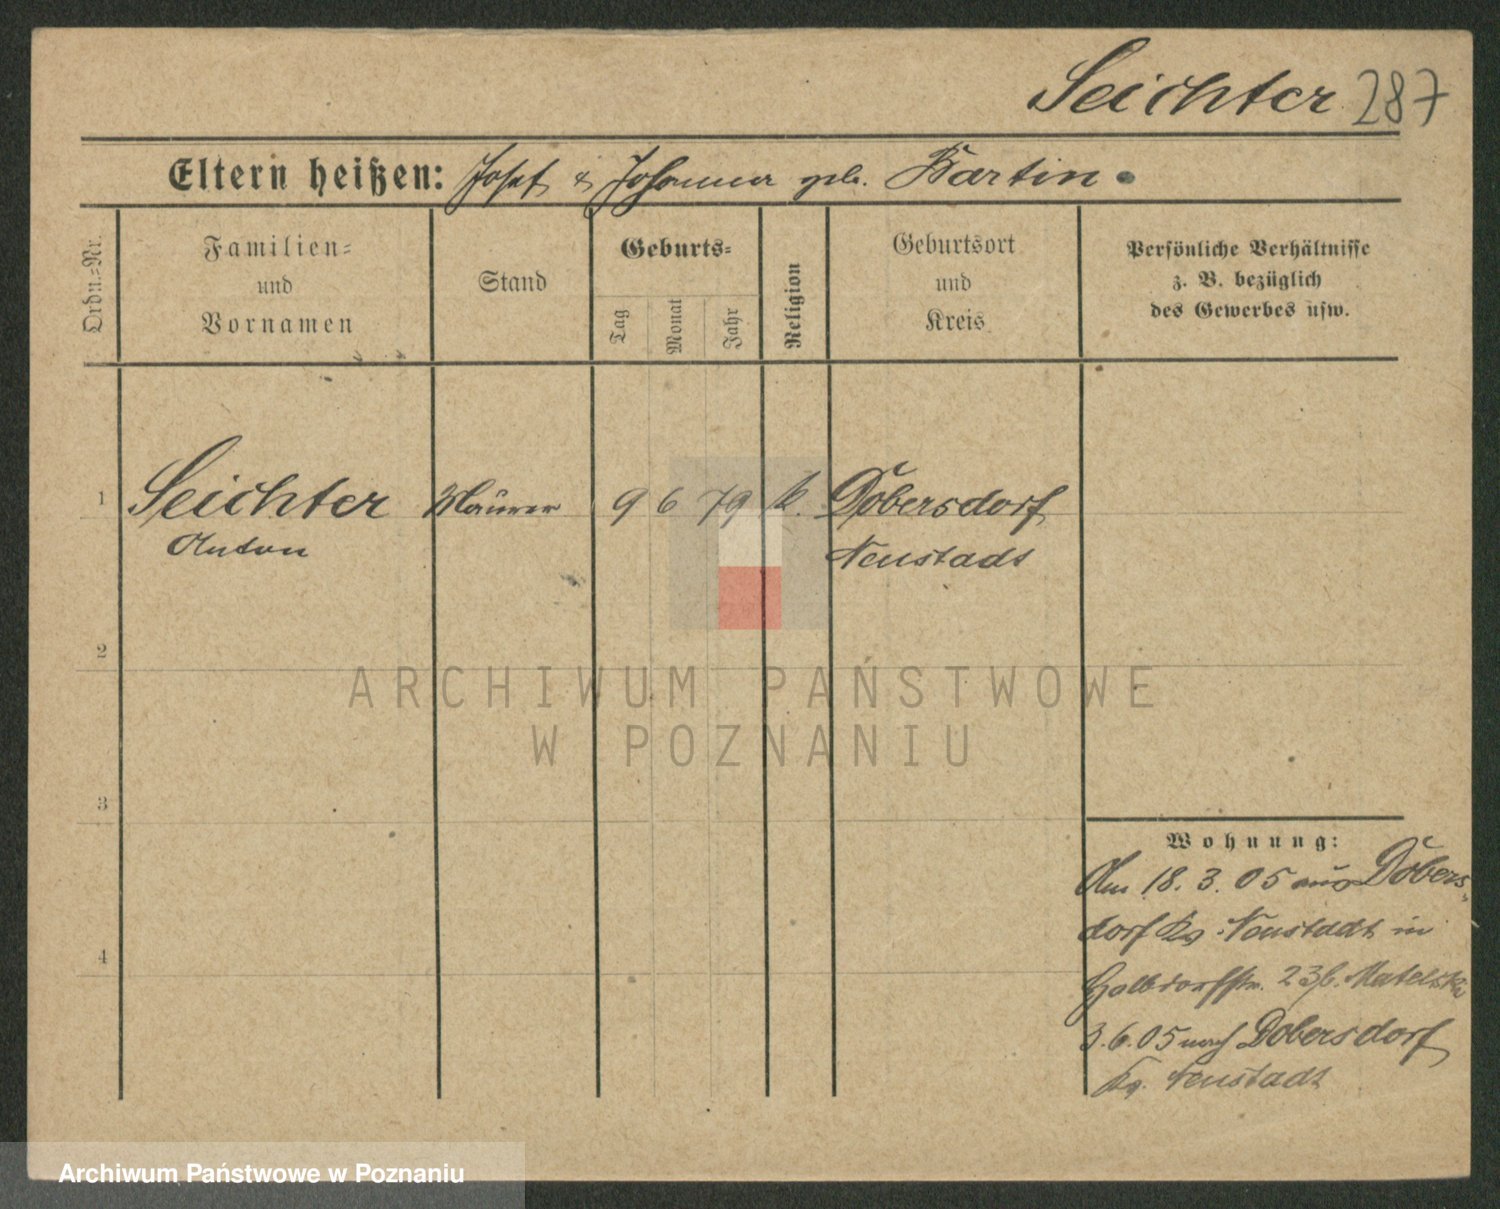 Seichter 287
Eltern heißen: Josef & Johanna geb. Bartin.
Ordn.=Nr.
Familien=
und
Vornamen
Stand
Geburts=
Tag
Monat
Jahr
Religion
Geburtsort
und
Kreis
Persönliche Verhältnisse
z. B. bezüglich
des Gewerbes usw.
1 Seichter Maurer 9 6 79 k. Dobersdorf
Anton Neustadt
2
ARCHIWUM PAŃSTWOWE
W POZNANIU
3
Wohnung:
Am 18. 3. 05 aus Dobers-
dorf Kr. Neustadt in
23 b. Matelska
3.6.05 nach Dobersdorf
Kr. Neustadt
4
Archiwum Państwowe w Poznaniu